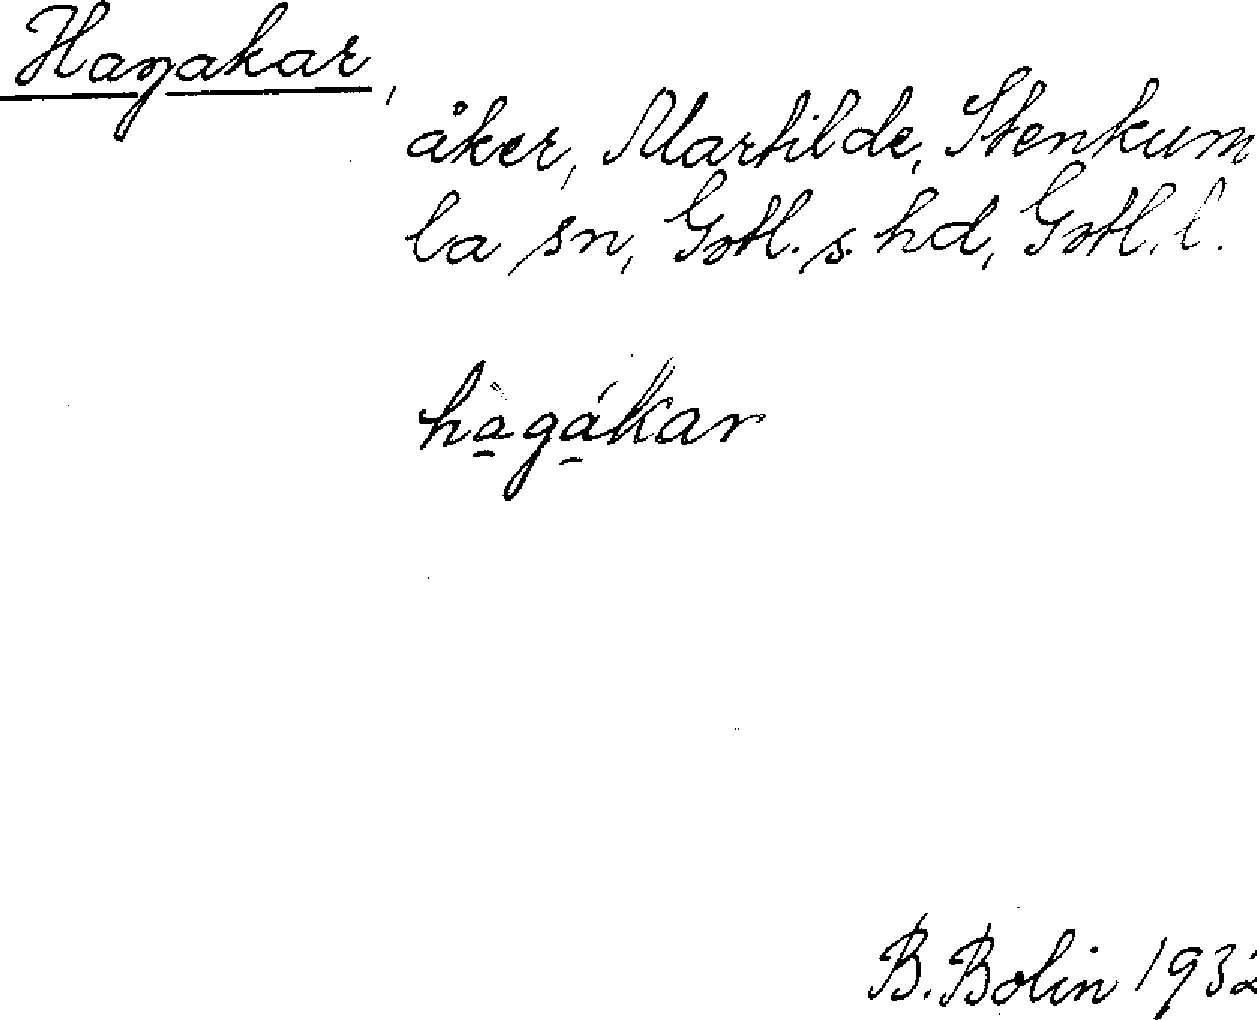 Hagakar,
åker, Martilde, Stenkum
la sn, Gotl. s. hd, Gotl. l.
hа̀gákar
B. Bolin 1932